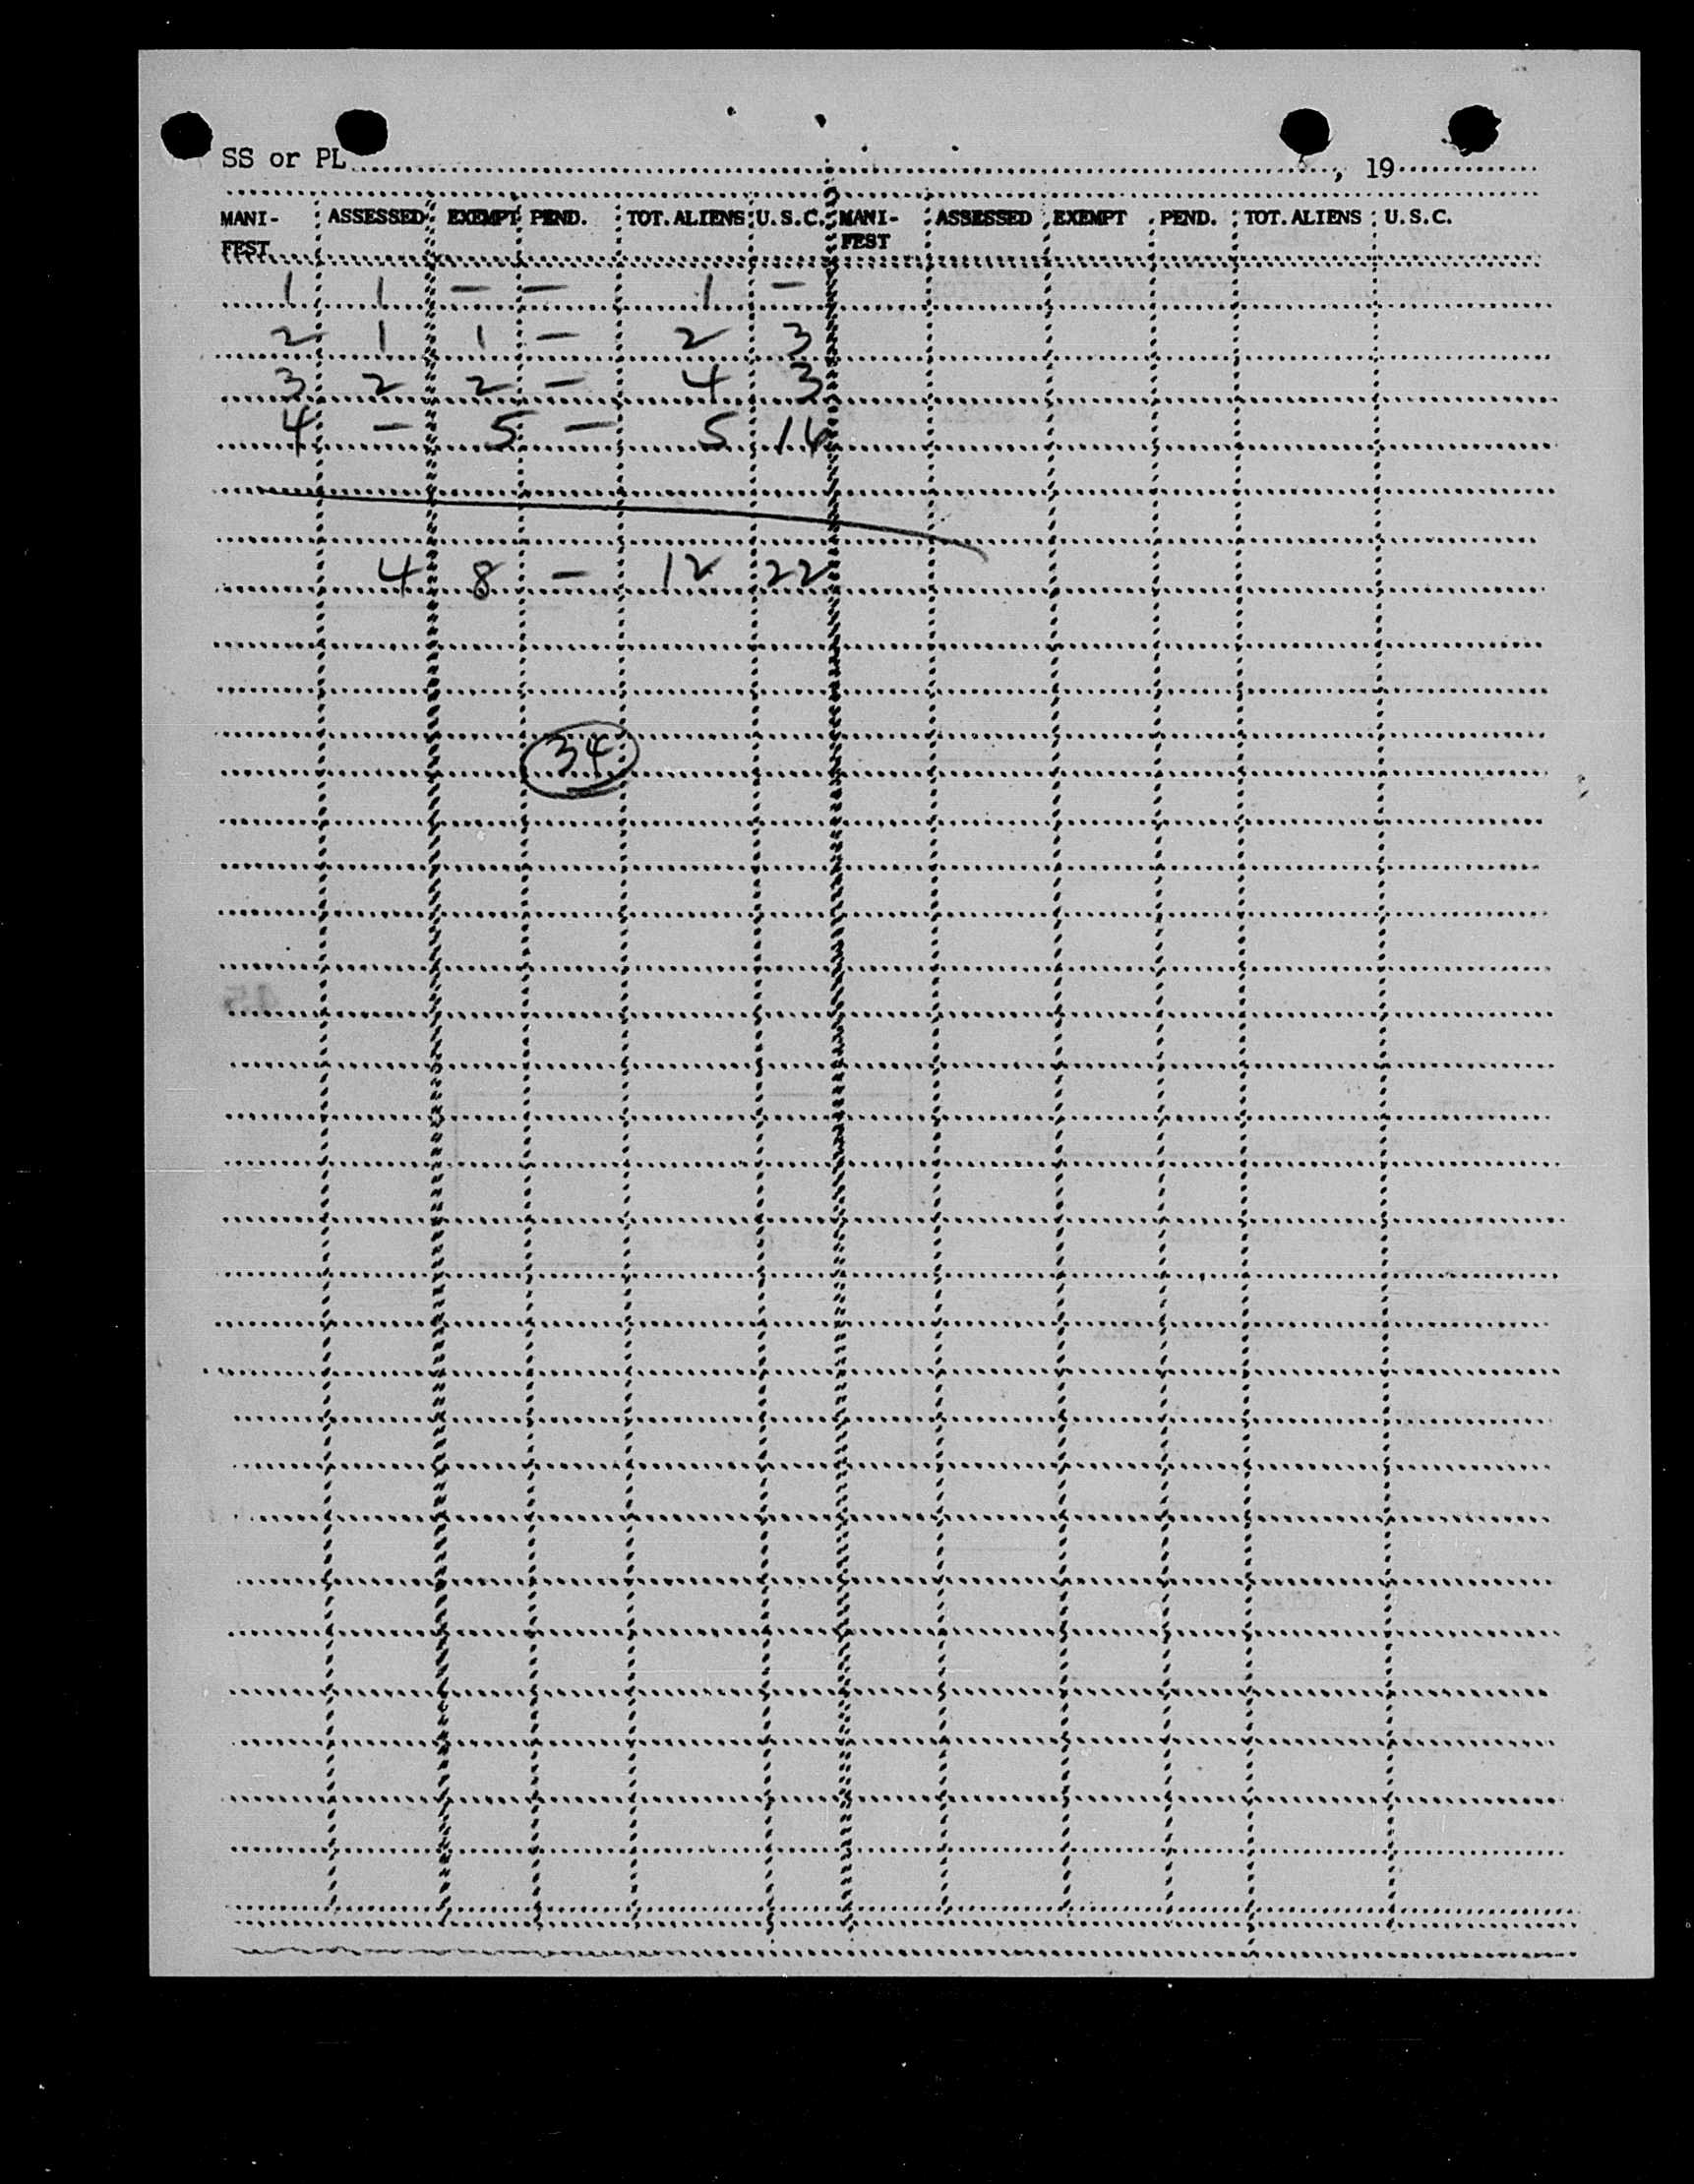 SS or PL , 19
MANI- ASSESSED EXEMPT PEND. TOT. ALIENS U.S.C. MANI- ASSESSED EXEMPT PEND. TOT. ALIENS U.S.C.
FEST FEST
1 1 — — 1 —
2 1 1 — 2 3
3 2 2 — 4 3
4 — 5 — 5 16
4 8 — 12 22
34